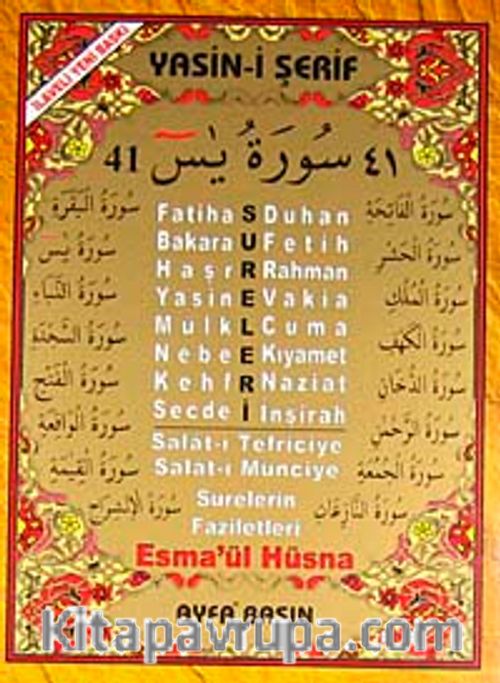 İLAVELİ YENİ BASKI
YASİN-İ ŞERİF
41 سُورَةُ يٰسٓ ٤١
سُورَةُ الْبَقَرَةِ
سُورَةُ يٰسٓ
سُورَةُ النَّبَاءِ
سُورَةُ السَّجْدَةِ
سُورَةُ الْفَتْحِ
سُورَةُ الْوَاقِعَةِ
سُورَةُ الْقِيٰمَةِ
سُورَةُ الْاِنْشِرَاحِ
Fatiha S Duhan
Bakara U Fetih
Haşr R Rahman
Yasin E Vakıa
Mulk L Cuma
Nebe E Kıyamet
Kehf R Naziat
Secde İ İnşirah
Salat-ı Tefriciye
Salat-ı Munciye
Surelerin
Faziletleri
سُورَةُ الْفَاتِحَةِ
سُورَةُ الْحَشْرِ
سُورَةُ الْمُلْكِ
سُورَةُ الْكَهْفِ
سُورَةُ الدُّخَانِ
سُورَةُ الرَّحْمٰنِ
سُورَةُ الْجُمُعَةِ
سُورَةُ النَّازِعَاتِ
Esma'ül Hüsna
AYFA BASIN
kitapavrupa.com